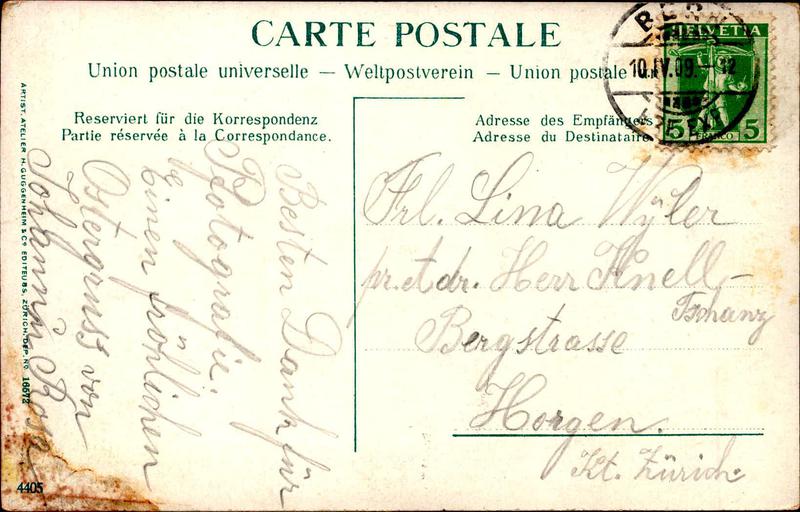 CARTE POSTALE
Union postale universelle — Weltpostverein — Union postale
Reserviert für die Korrespondenz
Partie réservée à la Correspondance.
Adresse des Empfängers
Adresse du Destinataire
BERN
10.IV.09.-12
HELVETIA
5 FRANCO 5
Frl. Lina Wyler
pr. et dr. Herr Knell-
Tschanz
Bergstrasse
Horgen.
Kt. Zürich
Besten Dank für
Photografie.
Einen fröhlichen
Ostergruss von
Rosa
ARTIST. ATELIER H. GUGGENHEIM & Co. EDITEURS, ZÜRICH. DEP. No. 16572
4405